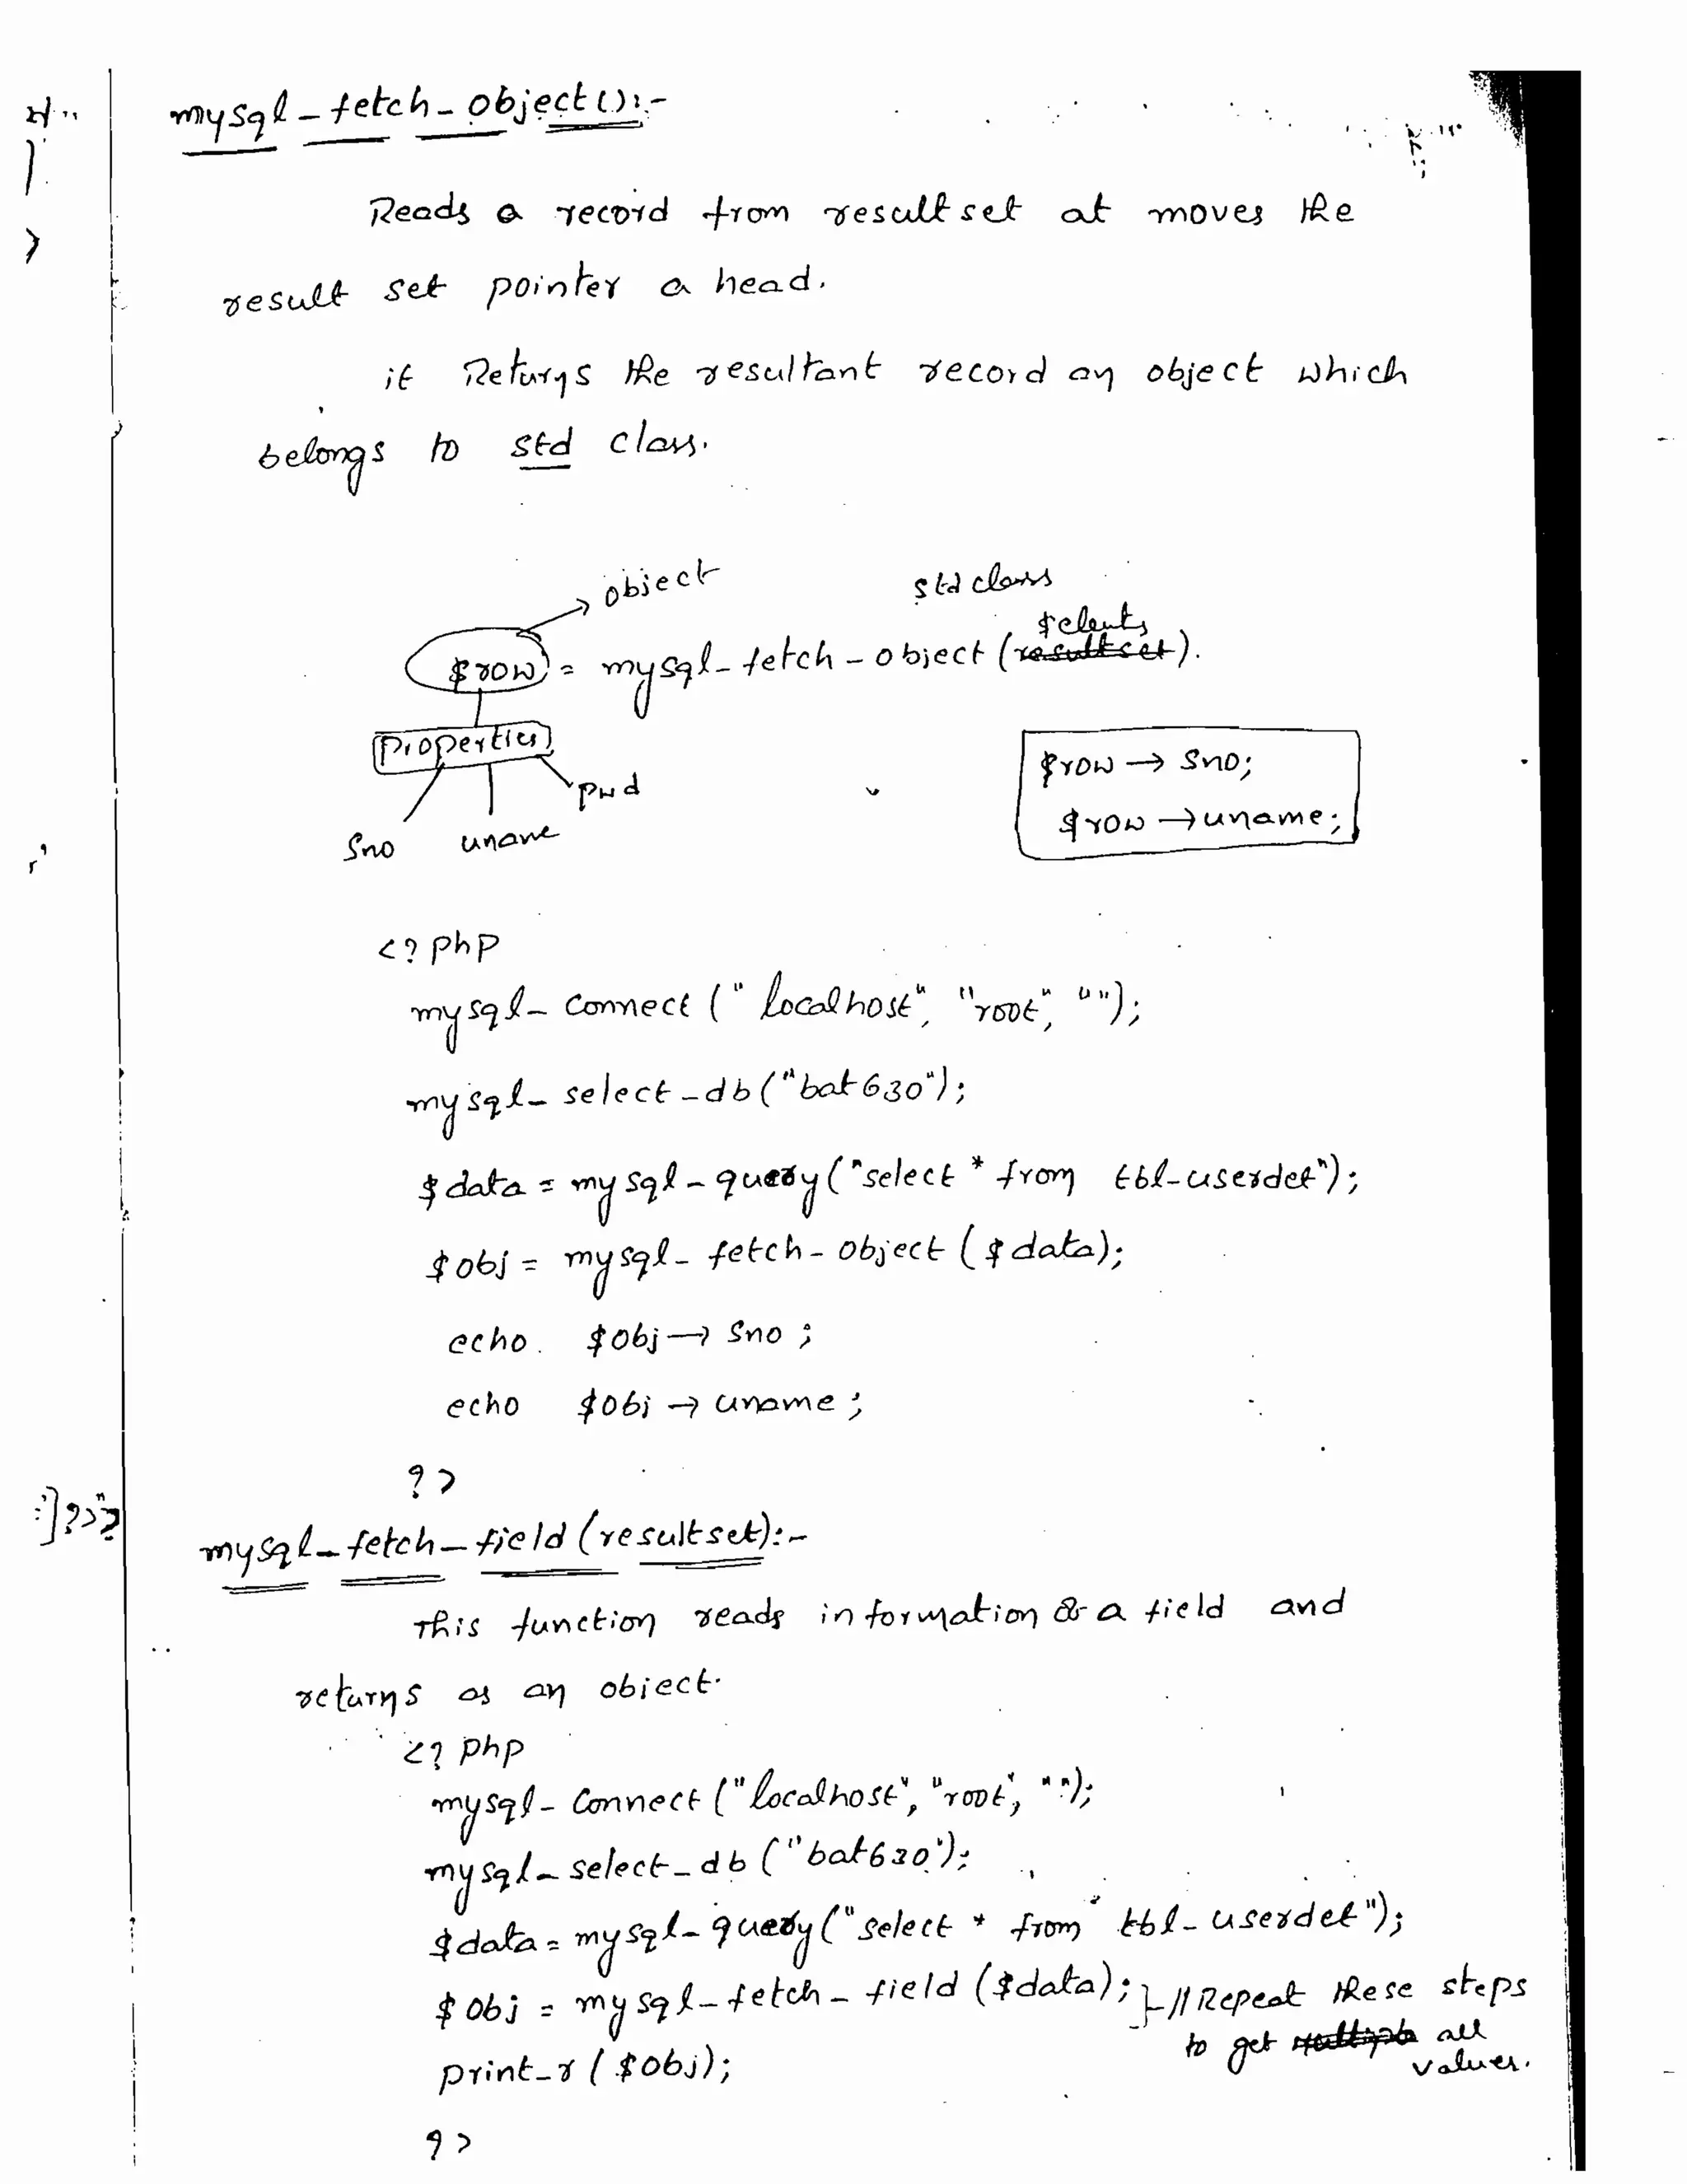 mysql_fetch_object():-
Reads a record from result set at moves the
result set pointer a head.
it Returns the resultant record an object which
belongs to std class.
object
std class
$row = mysql_fetch_object (resultset).
Properties
Sno uname pwd
$row → Sno;
$row → uname;
<? php
mysql_connect ("localhost", "root", "");
mysql_select_db("bat630");
$data = mysql_query("select * from tbl_userdet");
$obj = mysql_fetch_object ($data);
echo $obj → Sno ;
echo $obj → uname ;
? >
:']?>"?
mysql_fetch_field (resultset):-
This function reads information of a field and
returns as an object.
<? php
mysql_connect ("localhost", "root", "");
mysql_select_db ("bat630");
$data = mysql_query("select * from tbl_userdet");
$obj = mysql_fetch_field ($data); } // Repeat these steps
to get all
values.
print_r ($obj);
? >